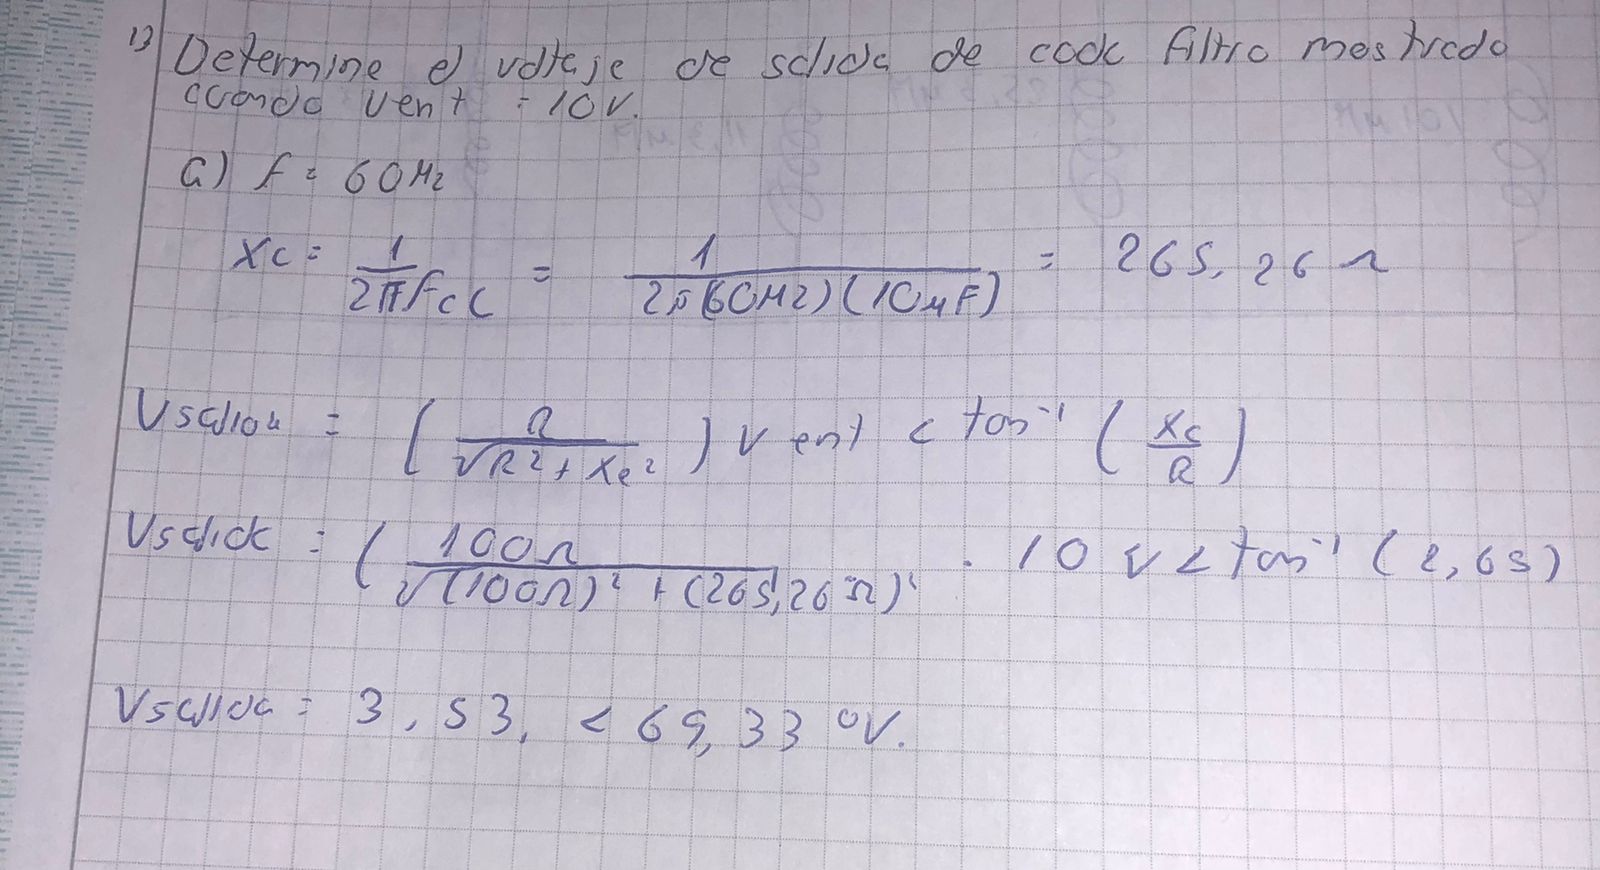 13) Determine el voltaje de salida de cada filtro mostrado
cuando Vent = 10V.
a) f = 60Hz
Xc = 1/(2πfcC) = 1/(2π(60Hz)(10μF)) = 265,26 Ω
Vsalida = (R/√(R²+Xc²)) Vent < tan⁻¹ (Xc/R)
Vsalida = (100Ω/√((100Ω)² + (265,26Ω)²) . 10V < tan⁻¹ (2,65)
Vsalida = 3,53, < 69,33 °V.